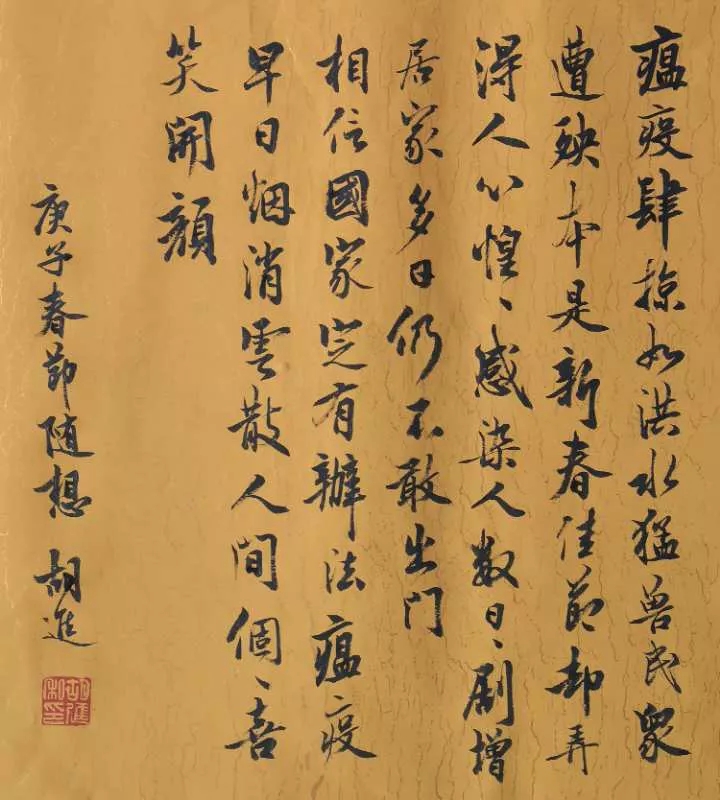 瘟疫肆掠如洪水猛兽民眾
遭殃本是新春佳節却弄
得人心惶、感染人数日、剧增
居家多日仍不敢出门
相信國家定有辦法瘟疫
早日烟消雲散人间個、喜
笑開顔
庚子春節随想 胡進
胡進私印